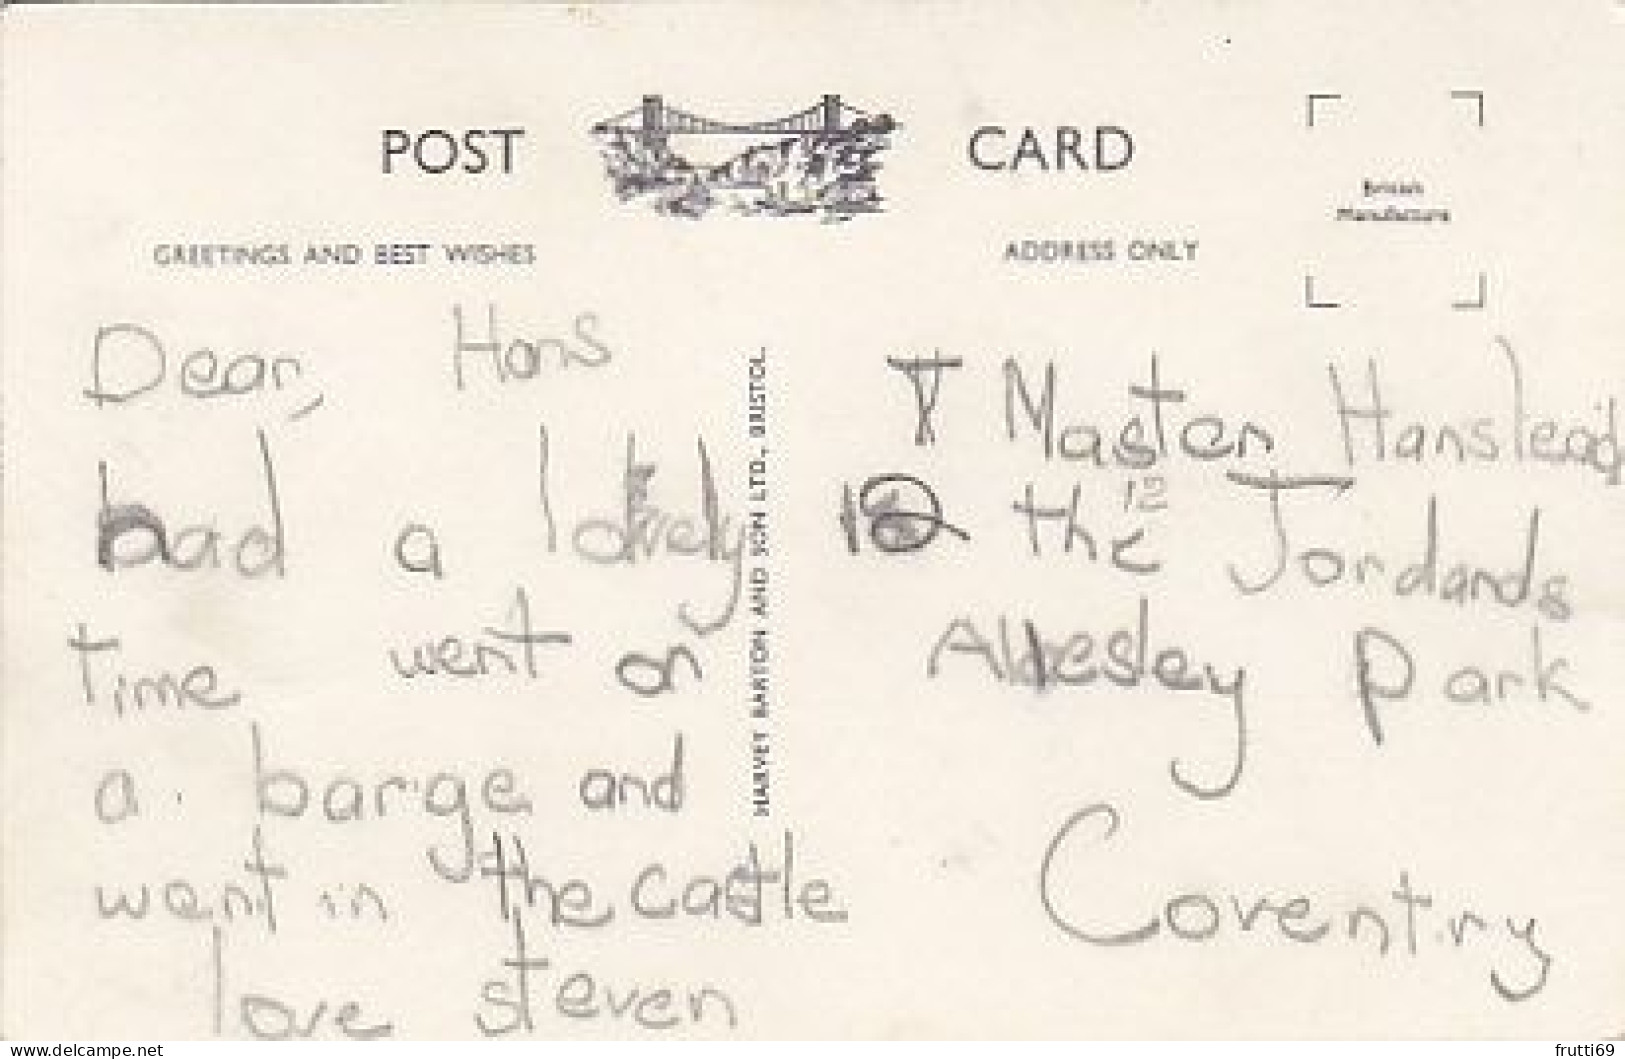 POST CARD
GREETINGS AND BEST WISHES
ADDRESS ONLY
British
Manufacture
Dear, Hans
had a lovely
time went on
a barge and
went in the castle
love steven
HARVEY BARTON AND SON LTD., BRISTOL.
Master Hanslead
12 the 12 Jordands
Allesley Park
Coventry
www.delcampe.net
frutti69